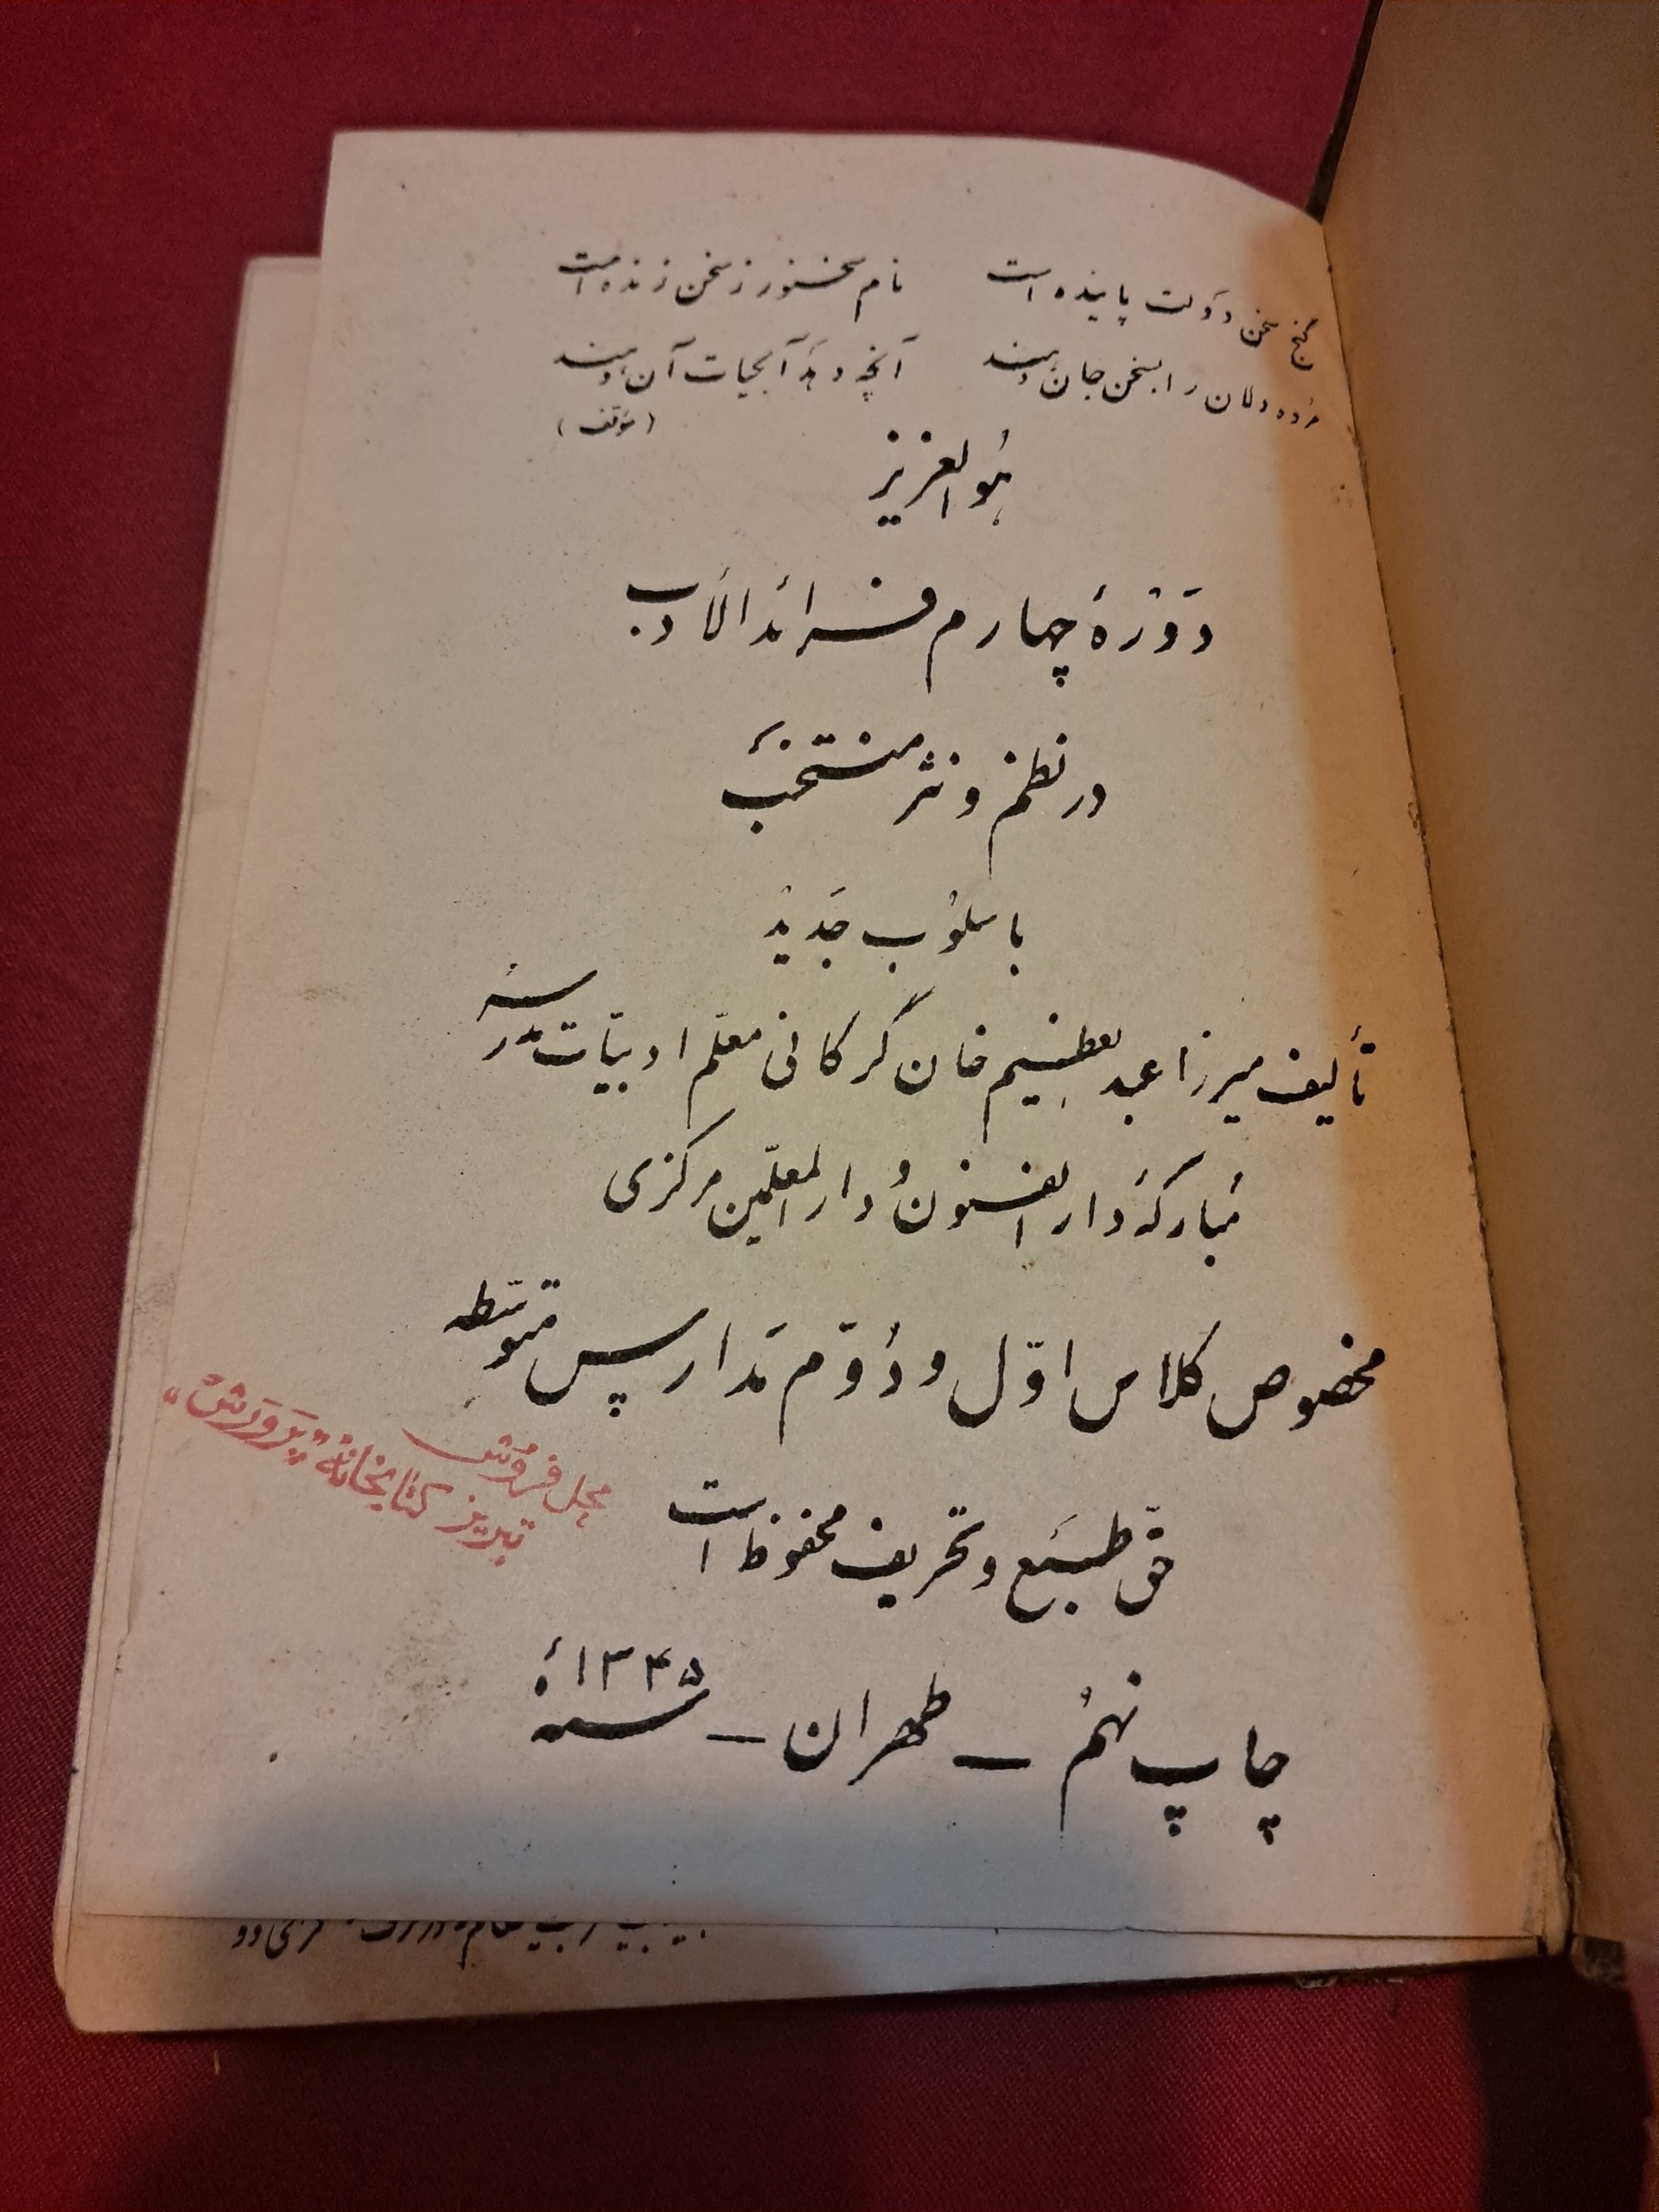 گنج سخن دَولت پاینده است نام سخنور ز سخن زنده است
مرده دلان را بسخن جان دهند آنچه دهَد آبحیات آن دهند
(مؤلف)
هُوالعزیز
دَوْرۀ چهارم فرائدالأدب
در نظم و نثر منتخَب
باسلوُب جَدیدْ
تألیف میرزا عبدالعظیم خان گرکانی معلّم ادبیّات مَدرسۀ
مُبارکۀ دارالفنون وُ دارالمعلّمین مرکزی
مخصوص کلاس اوّل و دُوّم مَدارس متوسّطه
محل فروش
تبریز کتابخانۀ "پَروَرش"
حقّ طبَع و تحریف محفوظ است
چاپ نهُم – طهران – سنۀ ۱۳۴۵